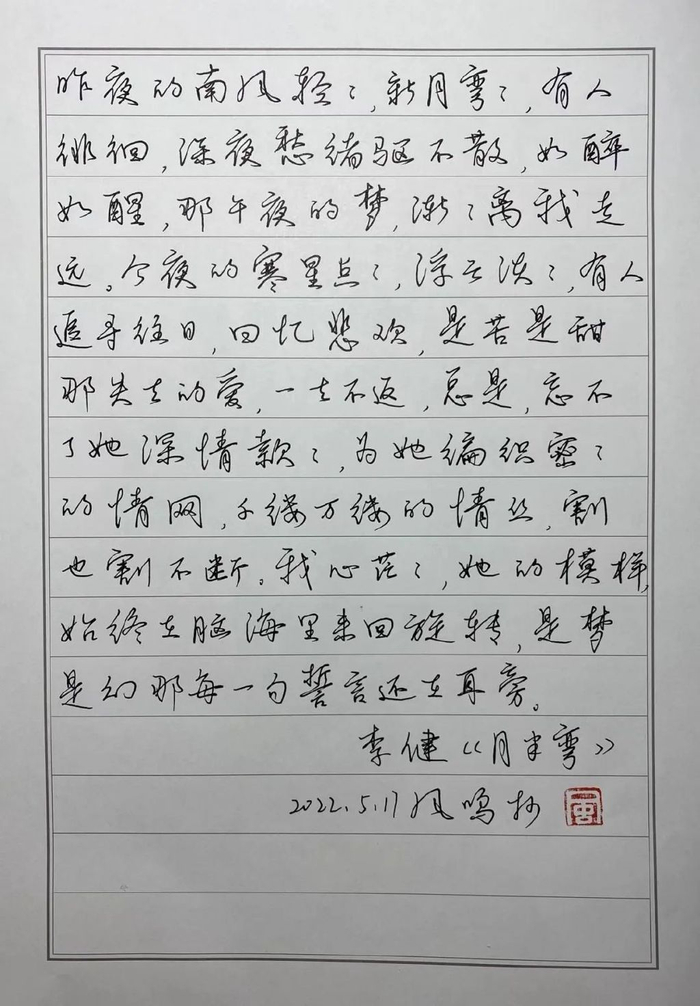 昨夜的南风轻々,新月弯々,有人
徘徊,深夜愁绪驱不散,如醉
如醒,那午夜的梦,渐々离我走
远。今夜的寒星点々,浮云淡々,有人
追寻往日,回忆悲欢,是苦是甜
那失去的爱,一去不返,总是,忘不
了她深情款々,为她编织密々
的情网,千缕万缕的情丝,割
也割不断。我心茫々,她的模样,
始终在脑海里来回旋转,是梦
是幻那每一句誓言还在耳旁。
李健《月半弯》
2022.5.17风鸣抄